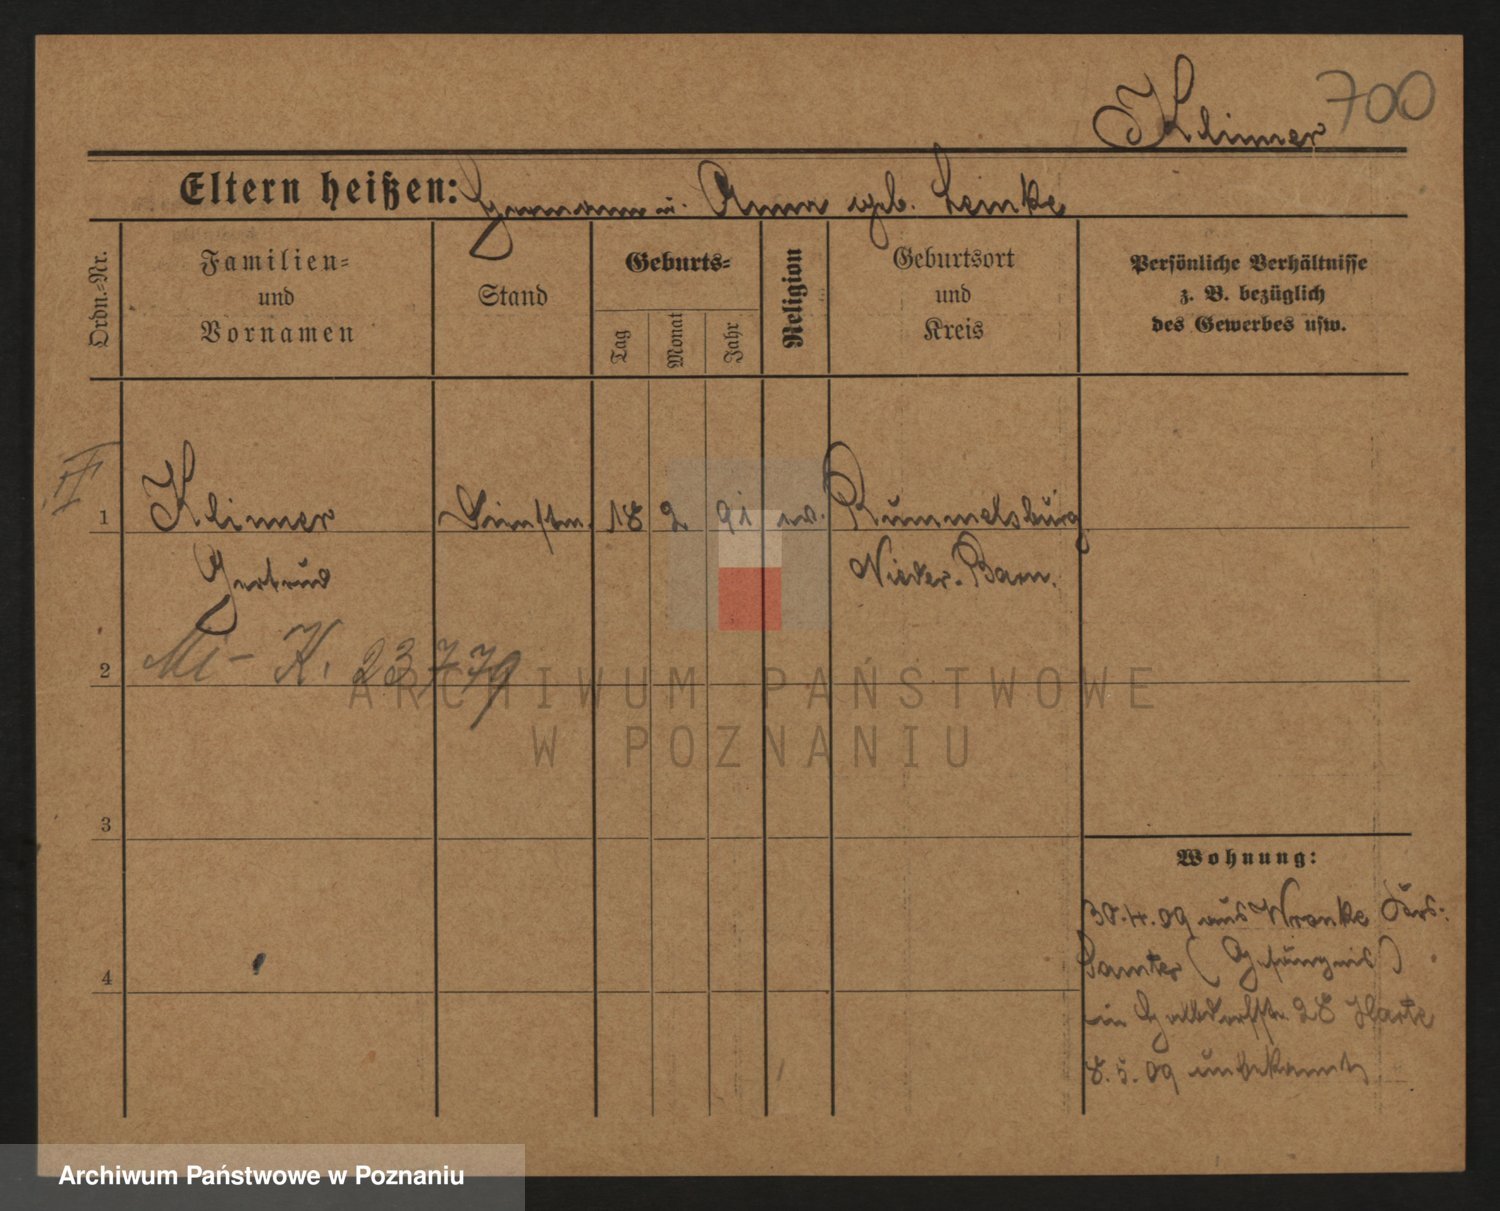 700
Klimer
Eltern heißen: Hermann u. Anna geb. Lemke
Ordn.-Nr.
Familien-
und
Vornamen
Stand
Geburts-
Tag
Monat
Jahr
Religion
Geburtsort
und
Kreis
Persönliche Verhältnisse
z. B. bezüglich
des Gewerbes usw.
II
1 Klimer Dienstm. 18 2 91 ev. Rummelsburg
Gertrud Nieder. Barn.
Mi- K. 23779
2
3
4
Wohnung:
30.4.09 aus Wronke Krs.
Samter (Gefängnis)
in 28
8.5.09 unbekannt
ARCHIWUM PAŃSTWOWE
W POZNANIU
Archiwum Państwowe w Poznaniu